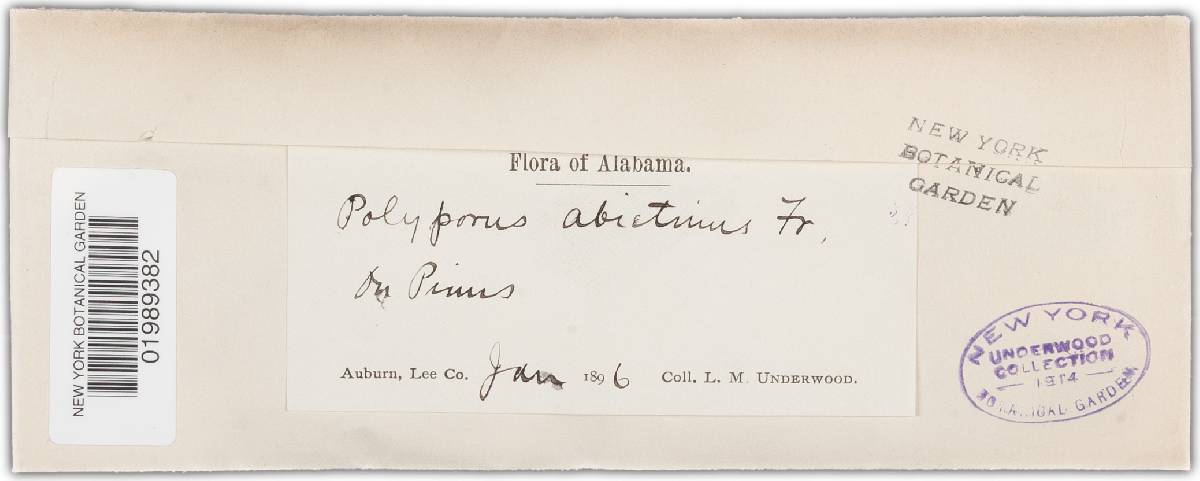 NEW YORK
BOTANICAL
GARDEN
Flora of Alabama.
Polyporus abietinus Fr.
On Pinus
Auburn, Lee Co. Jan 1896 Coll. L. M. UNDERWOOD.
NEW YORK BOTANICAL GARDEN
01989382
NEW YORK
UNDERWOOD
COLLECTION
1914
BOTANICAL GARDEN